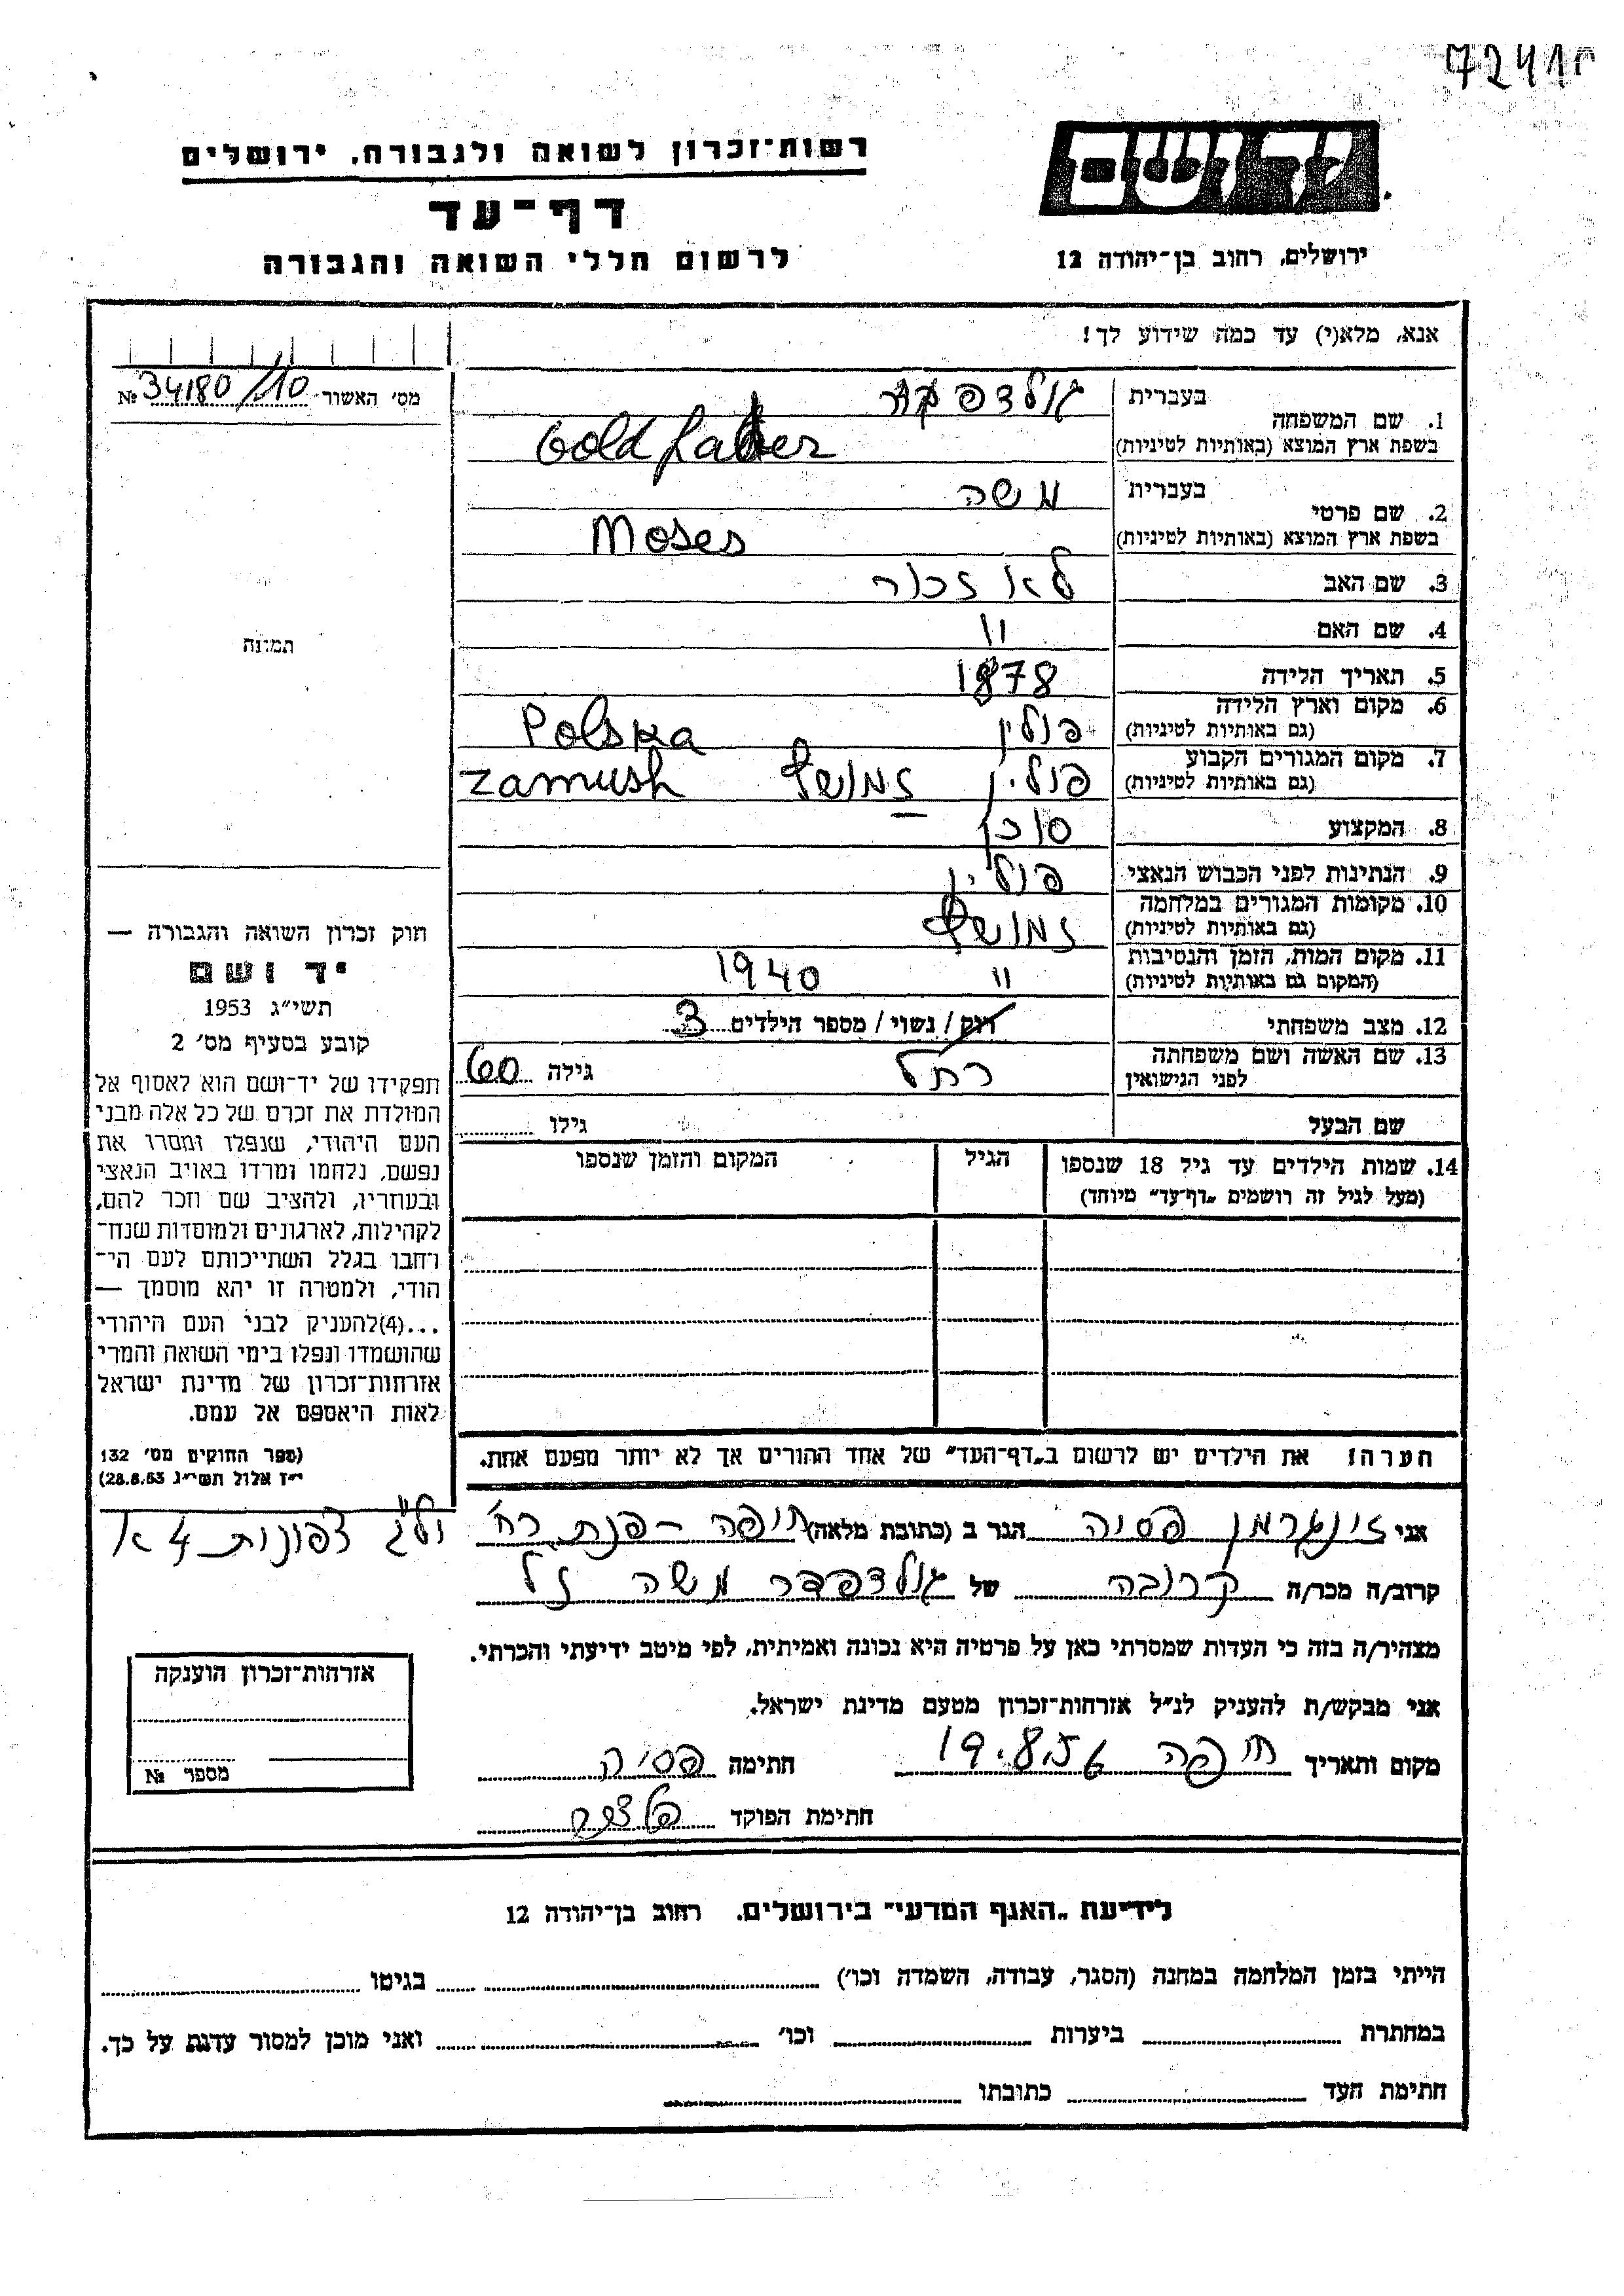 7241
רשות־זכרון לשואה ולגבורה, ירושלים
יד ושם
דף־עד
לרשום חללי השואה והגבורה
ירושלים, רחוב בן־יהודה 12
אנא, מלא(י) עד כמה שידוע לך!
מס׳ האשור 34180/10 №
1. שם המשפחה בעברית
בשפת ארץ המוצא (באותיות לטיניות) Gold
2. שם פרטי בעברית משה
בשפת ארץ המוצא (באותיות לטיניות) Moses
3. שם האב לא זכור
4. שם האם "
5. תאריך הלידה 1878
6. מקום וארץ הלידה (גם באותיות לטיניות) פולין Polska
7. מקום המגורים הקבוע (גם באותיות לטיניות) פולין זמושץ Zamush
8. המקצוע סוכן
9. הנתינות לפני הכבוש הנאצי פולין
10. מקומות המגורים במלחמה (גם באותיות לטיניות) זמושץ
11. מקום המות, הזמן והנסיבות (המקום גם באותיות לטיניות) " 1940
12. מצב משפחתי רוק / נשוי / מספר הילדים 3
13. שם האשה ושם משפחתה לפני הנישואין רחל גילה 60
שם הבעל גילו
14. שמות הילדים עד גיל 18 שנספו הגיל המקום והזמן שנספו
(מעל לגיל זה רושמים „דף־עד" מיוחד)
תמונה
חוק זכרון השואה והגבורה —
יד ושם
תשי״ג 1953
קובע בסעיף מס׳ 2
תפקידו של יד־ושם הוא לאסוף אל
המולדת את זכרם של כל אלה מבני
העם היהודי, שנפלו ומסרו את
נפשם, נלחמו ומרדו באויב הנאצי
ובעוזריו, ולהציב שם וזכר להם,
לקהילות, לארגונים ולמוסדות שנח־
רבו בגלל השתייכותם לעם הי־
הודי, ולמטרה זו יהא מוסמך —
...(4)להעניק לבני העם היהודי
שהושמדו ונפלו בימי השואה והמרי
אזרחות־זכרון של מדינת ישראל
לאות היאספם אל עמם.
(ספר החוקים מס׳ 132
י״ז אלול תשי״ג 28.8.53)
הערה! את הילדים יש לרשום ב„דף־העד" של אחד ההורים אך לא יותר מפעם אחת.
אני זינגרמן פסיה הגר ב (כתובת מלאה) חיפה – פנת רח׳
קרוב/ה מכר/ה קרובה של גולדפדר משה ז"ל
מצהיר/ה בזה כי העדות שמסרתי כאן על פרטיה היא נכונה ואמיתית, לפי מיטב ידיעתי והכרתי.
אני מבקש/ת להעניק לנ״ל אזרחות־זכרון מטעם מדינת ישראל.
מקום ותאריך חיפה חתימה פסיה
חתימת הפוקד
אזרחות־זכרון הוענקה
מספר №
לידיעת „האגף המדעי" בירושלים, רחוב בן־יהודה 12
הייתי בזמן המלחמה במחנה (הסגר, עבודה, השמדה וכו׳) בגיטו
במחתרת ביערות וכו׳ ואני מוכן למסור עדות על כך.
חתימת העד כתובתו